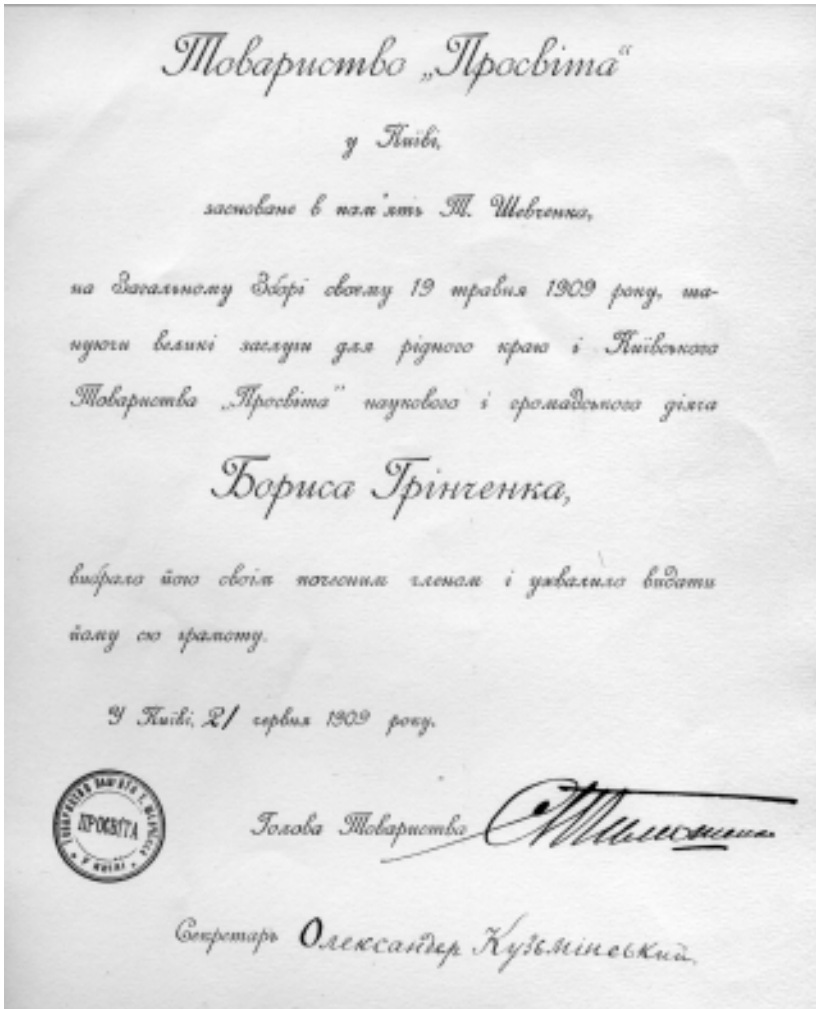 Товариство „Просвіта“
у Київі,
засноване в пам'ять Т. Шевченка,
на Загальному Зборі своєму 19 травня 1909 року, ша-
нуючи великі заслуги для рідного краю і Київського
Товариства „Просвіта“ наукового і громадського діяча
Бориса Грінченка,
вибрало його своїм почесним членом і ухвалило видати
йому сю грамоту.
У Київі, 21 червня 1909 року.
ТОВАРИСТВО ПАМ'ЯТИ Т. ШЕВЧЕНКА
ПРОСВІТА
У КИЇВІ
Голова Товариства
Секретарь Олександер Кузьмінський.